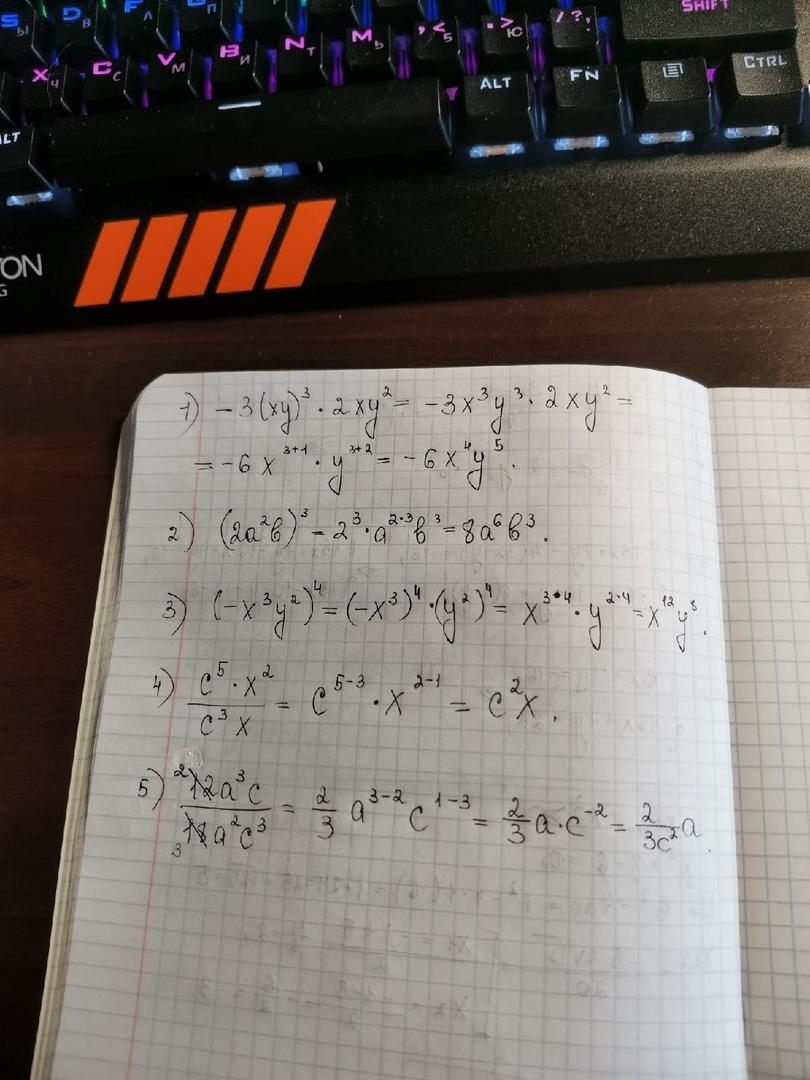 S Ы D В F Л G П
X Ч C С V М B И N Т M Ь , < Б . > Ю / ? , SHIFT
ALT ALT FN CTRL
YON
G
1) -3(xy)³ · 2xy² = -3x³y³ · 2xy² =
= -6x³⁺¹ · y³⁺² = -6x⁴y⁵.
2) (2a²b)³ - 2³·a²·³b³ = 8a⁶b³.
3) (-x³y²)⁴ = (-x³)⁴·(y²)⁴ = x³·⁴·y²·⁴ = x¹²y⁸.
4) c⁵·x² / c³x = c⁵⁻³·x²⁻¹ = c²x.
5) ² 12a³c / ₃ 18a²c³ = 2/3 a³⁻²c¹⁻³ = 2/3 a·c⁻² = 2/3c² a.